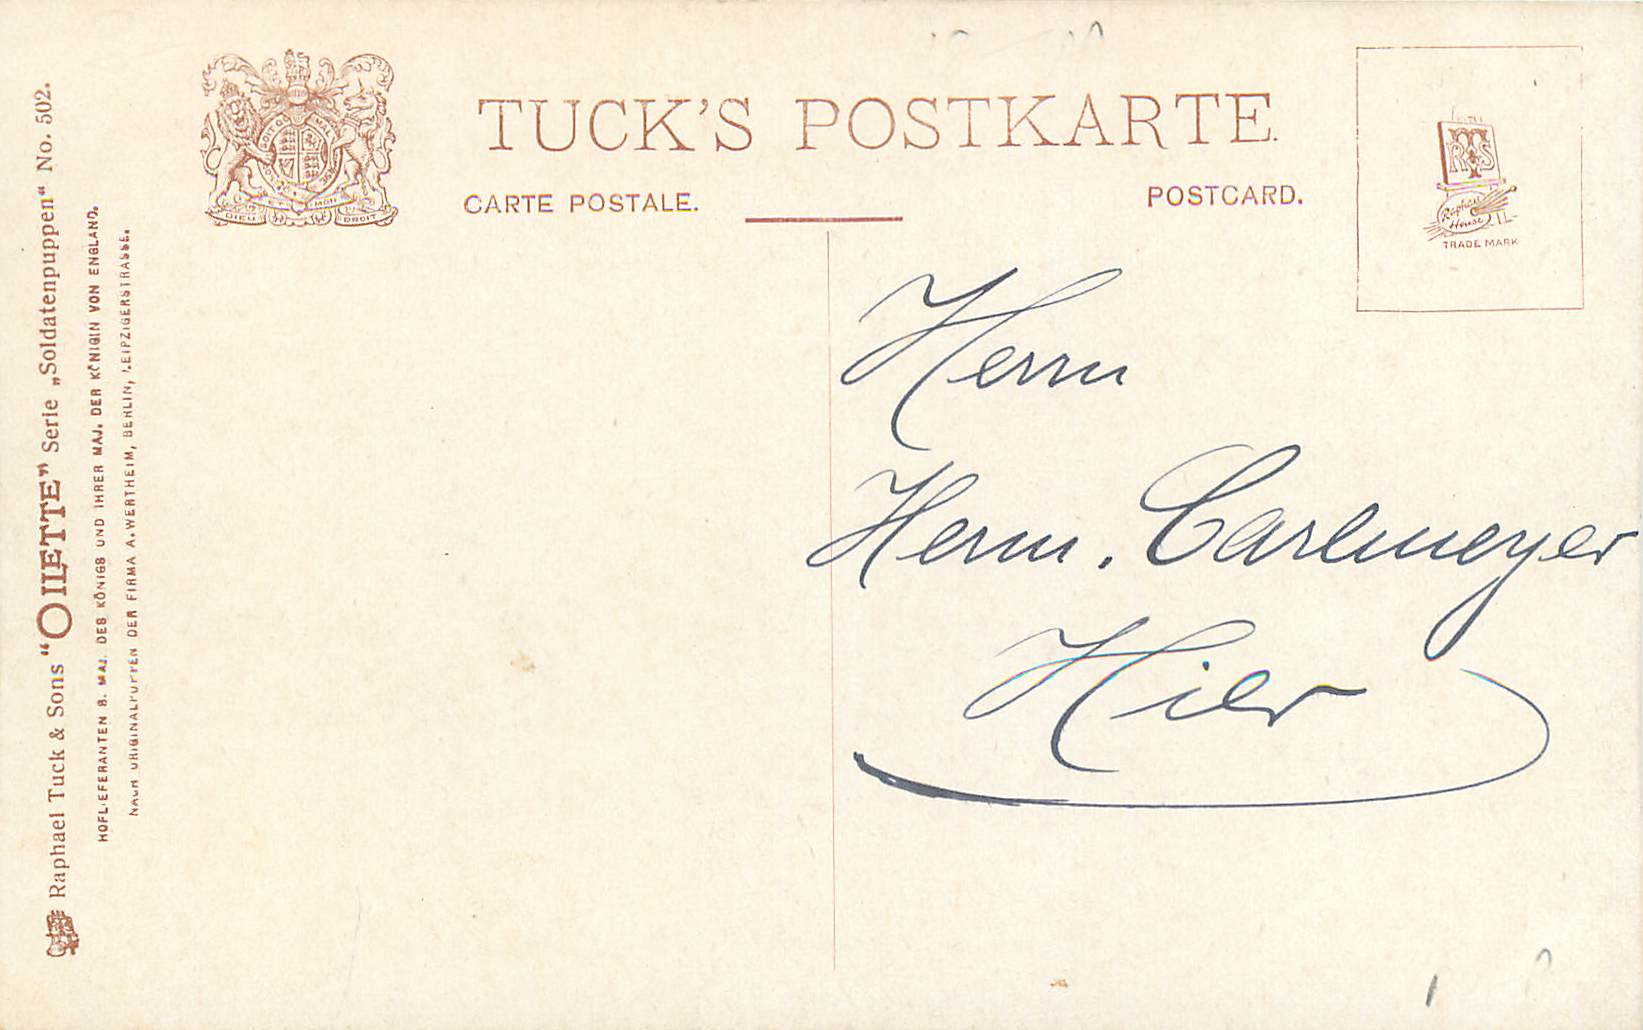 TUCK'S POSTKARTE.
CARTE POSTALE.
POSTCARD.
DIEU ET MON DROIT
RTS
Raphael House
TRADE MARK
Raphael Tuck & Sons “OILETTE” Serie „Soldatenpuppen“ No. 502.
HOFLIEFERANTEN S. MAJ. DES KÖNIGS UND IHRER MAJ. DER KÖNIGIN VON ENGLAND.
NACH ORIGINALPUPPEN DER FIRMA A. WERTHEIM, BERLIN, LEIPZIGERSTRASSE.
Herrn
Herm. Carlmeyer
Hier